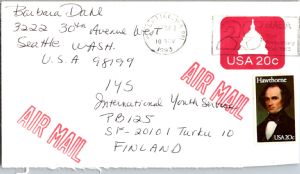 Barbara Dahl
3222 30th Avenue West
Seattle WASH.
U.S.A 98199
1983
USA 20c
AIR MAIL
IYS
International Youth Service
PB 125
SF-20101 Turku 10
FINLAND
AIR MAIL
Hawthorne
USA 20c